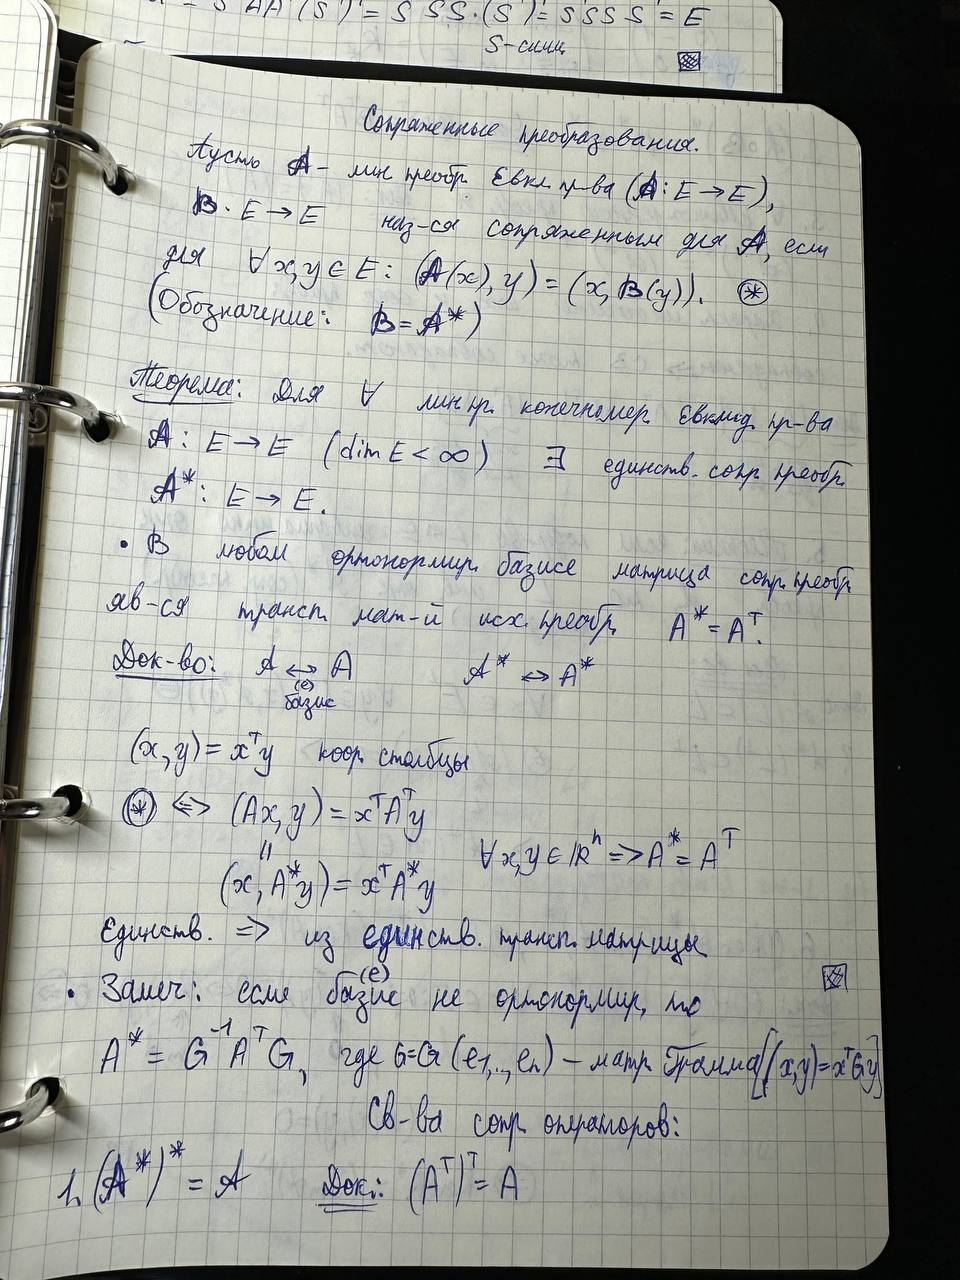 S-симм
Сопряженные преобразования.
Пусть A - лин преобр. Евкл. пр-ва (A: E → E),
B: E → E наз-ся сопряженным для A, если
для ∀x,y ∈ E: (A(x), y) = (x, B(y)). ⊛
(Обозначение: B = A*)
Теорема: Для ∀ лин пр. конечномер. Евклид. пр-ва
A: E → E (dim E < ∞) ∃ единств. сопр. преобр.
A*: E → E.
• В любом ортонормир. базисе матрица сопр. преобр
яв-ся трансп. мат-й исх. преобр. A* = Aᵀ.
Док-во: A ↔ A A* ↔ A*
(e)
базис
(x, y) = xᵀy коор. столбцы
⊛ <=> (Ax, y) = xᵀAᵀy
|| ∀x,y ∈ ℝⁿ => A* = Aᵀ
(x, A*y) = xᵀA*y
Единств. => из единств. трансп. матрицы
• Замеч: если базис (e) не ортонормир, то
A* = G⁻¹AᵀG, где G=G(e₁,..,eₙ) - матр. Грамма [(x,y)=xᵀGy]
Св-ва сопр. операторов:
1. (A*)* = A Док: (Aᵀ)ᵀ = A